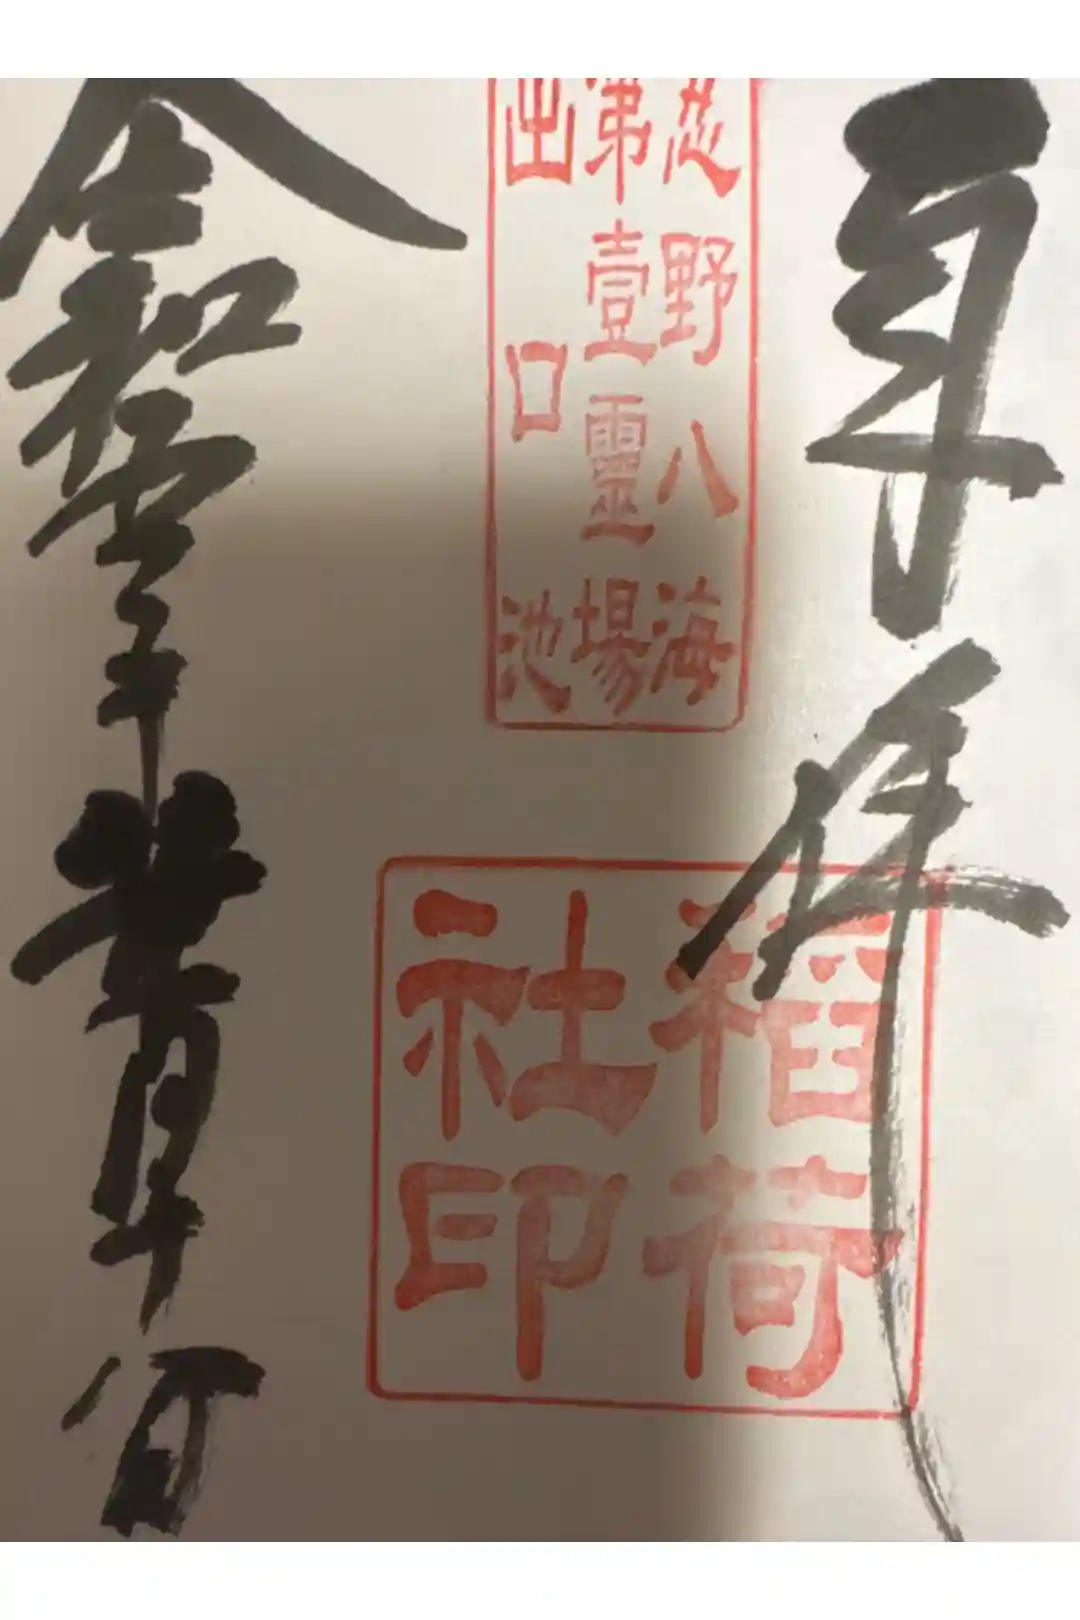 奉拝
忍野八海
第壹靈場
出口池
稲荷
社印
令和五年月日